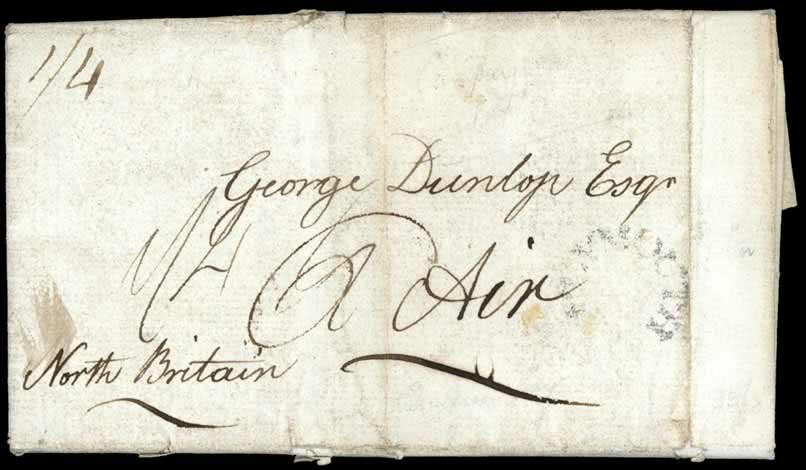 1/4
George Dunlop Esqr
1/4
Air
North Britain